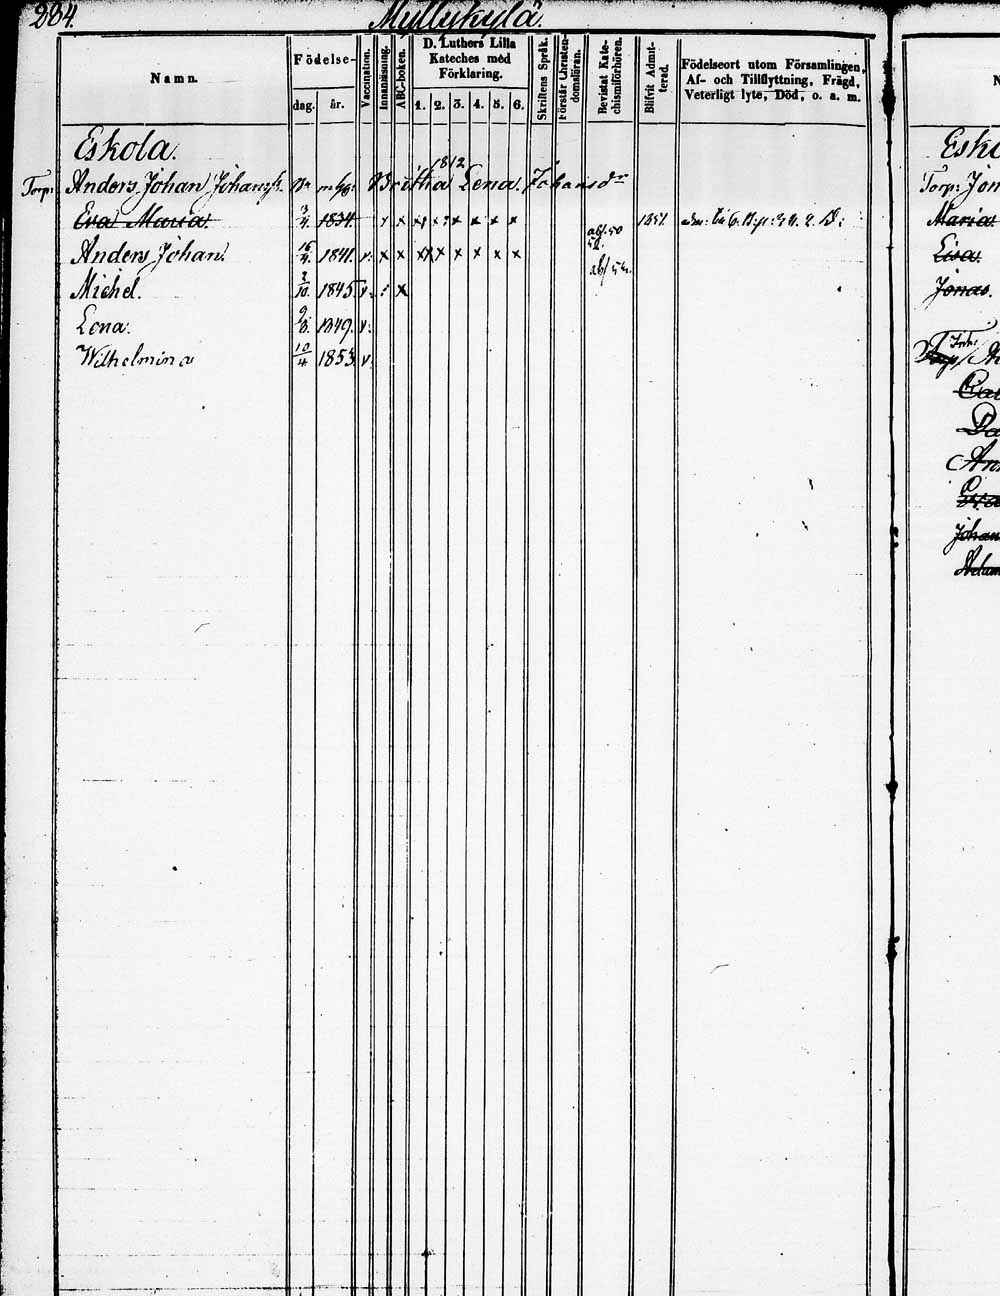 284.
Myllykylä.
Namn.
Födelse-
dag. år.
Vaccination.
Innanläsning.
ABC-boken.
D. Luthers Lilla
Kateches med
Förklaring.
1. 2. 3. 4. 5. 6.
Skriftens Språk.
Förstår Christen-
domsläran.
Bevistat Kate-
chismiförhören.
Blifvit Admit-
terad.
Födelseort utom Församlingen,
Af- och Tillflyttning, Frägd,
Veterligt lyte, Död, o. a. m.
Eskola.
1812
Torp: Anders Johan Johanss. Britha Lena Johansdr
Eva Maria 3/4. 1834. x x x x x x x x 1851
Anders Johan 16/4. 1841. v. x x x x x x x x
Michel. 2/10. 1845 v. : x
Lena. 9/3. 1849. v.
Wilhelmina 10/4 1853. v.
Esko
Torp: Jon
Maria
Lisa.
Jonas.
Johan
Adam